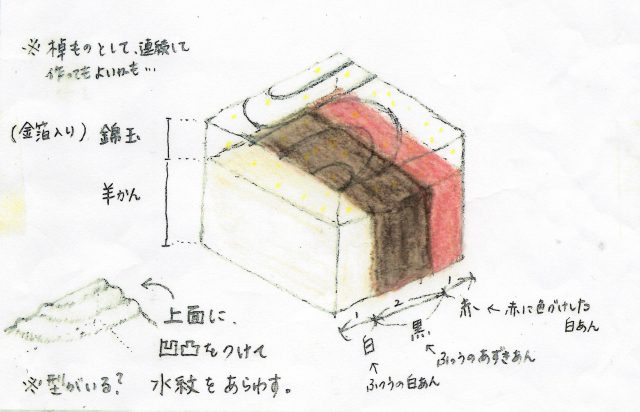 ※ 棹ものとして、連続して
作ってもよいかも…
(金箔入り) 錦玉
羊かん
上面に、
凹凸をつけて
水紋をあらわす。
※型がいる?
1 2 1
白 黒 赤 ← 赤に色づけした
白あん
ふつうのあずきあん
ふつうの白あん